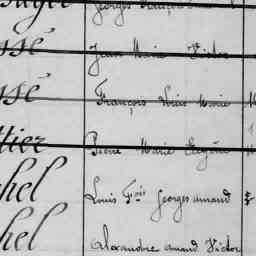 Georges François
ssé Jean Marie Victor
ssé François Louis Marie
ttier Pierre Marie Eugène
hel Louis Fois Georges amand
hel Alexandre amand Victor